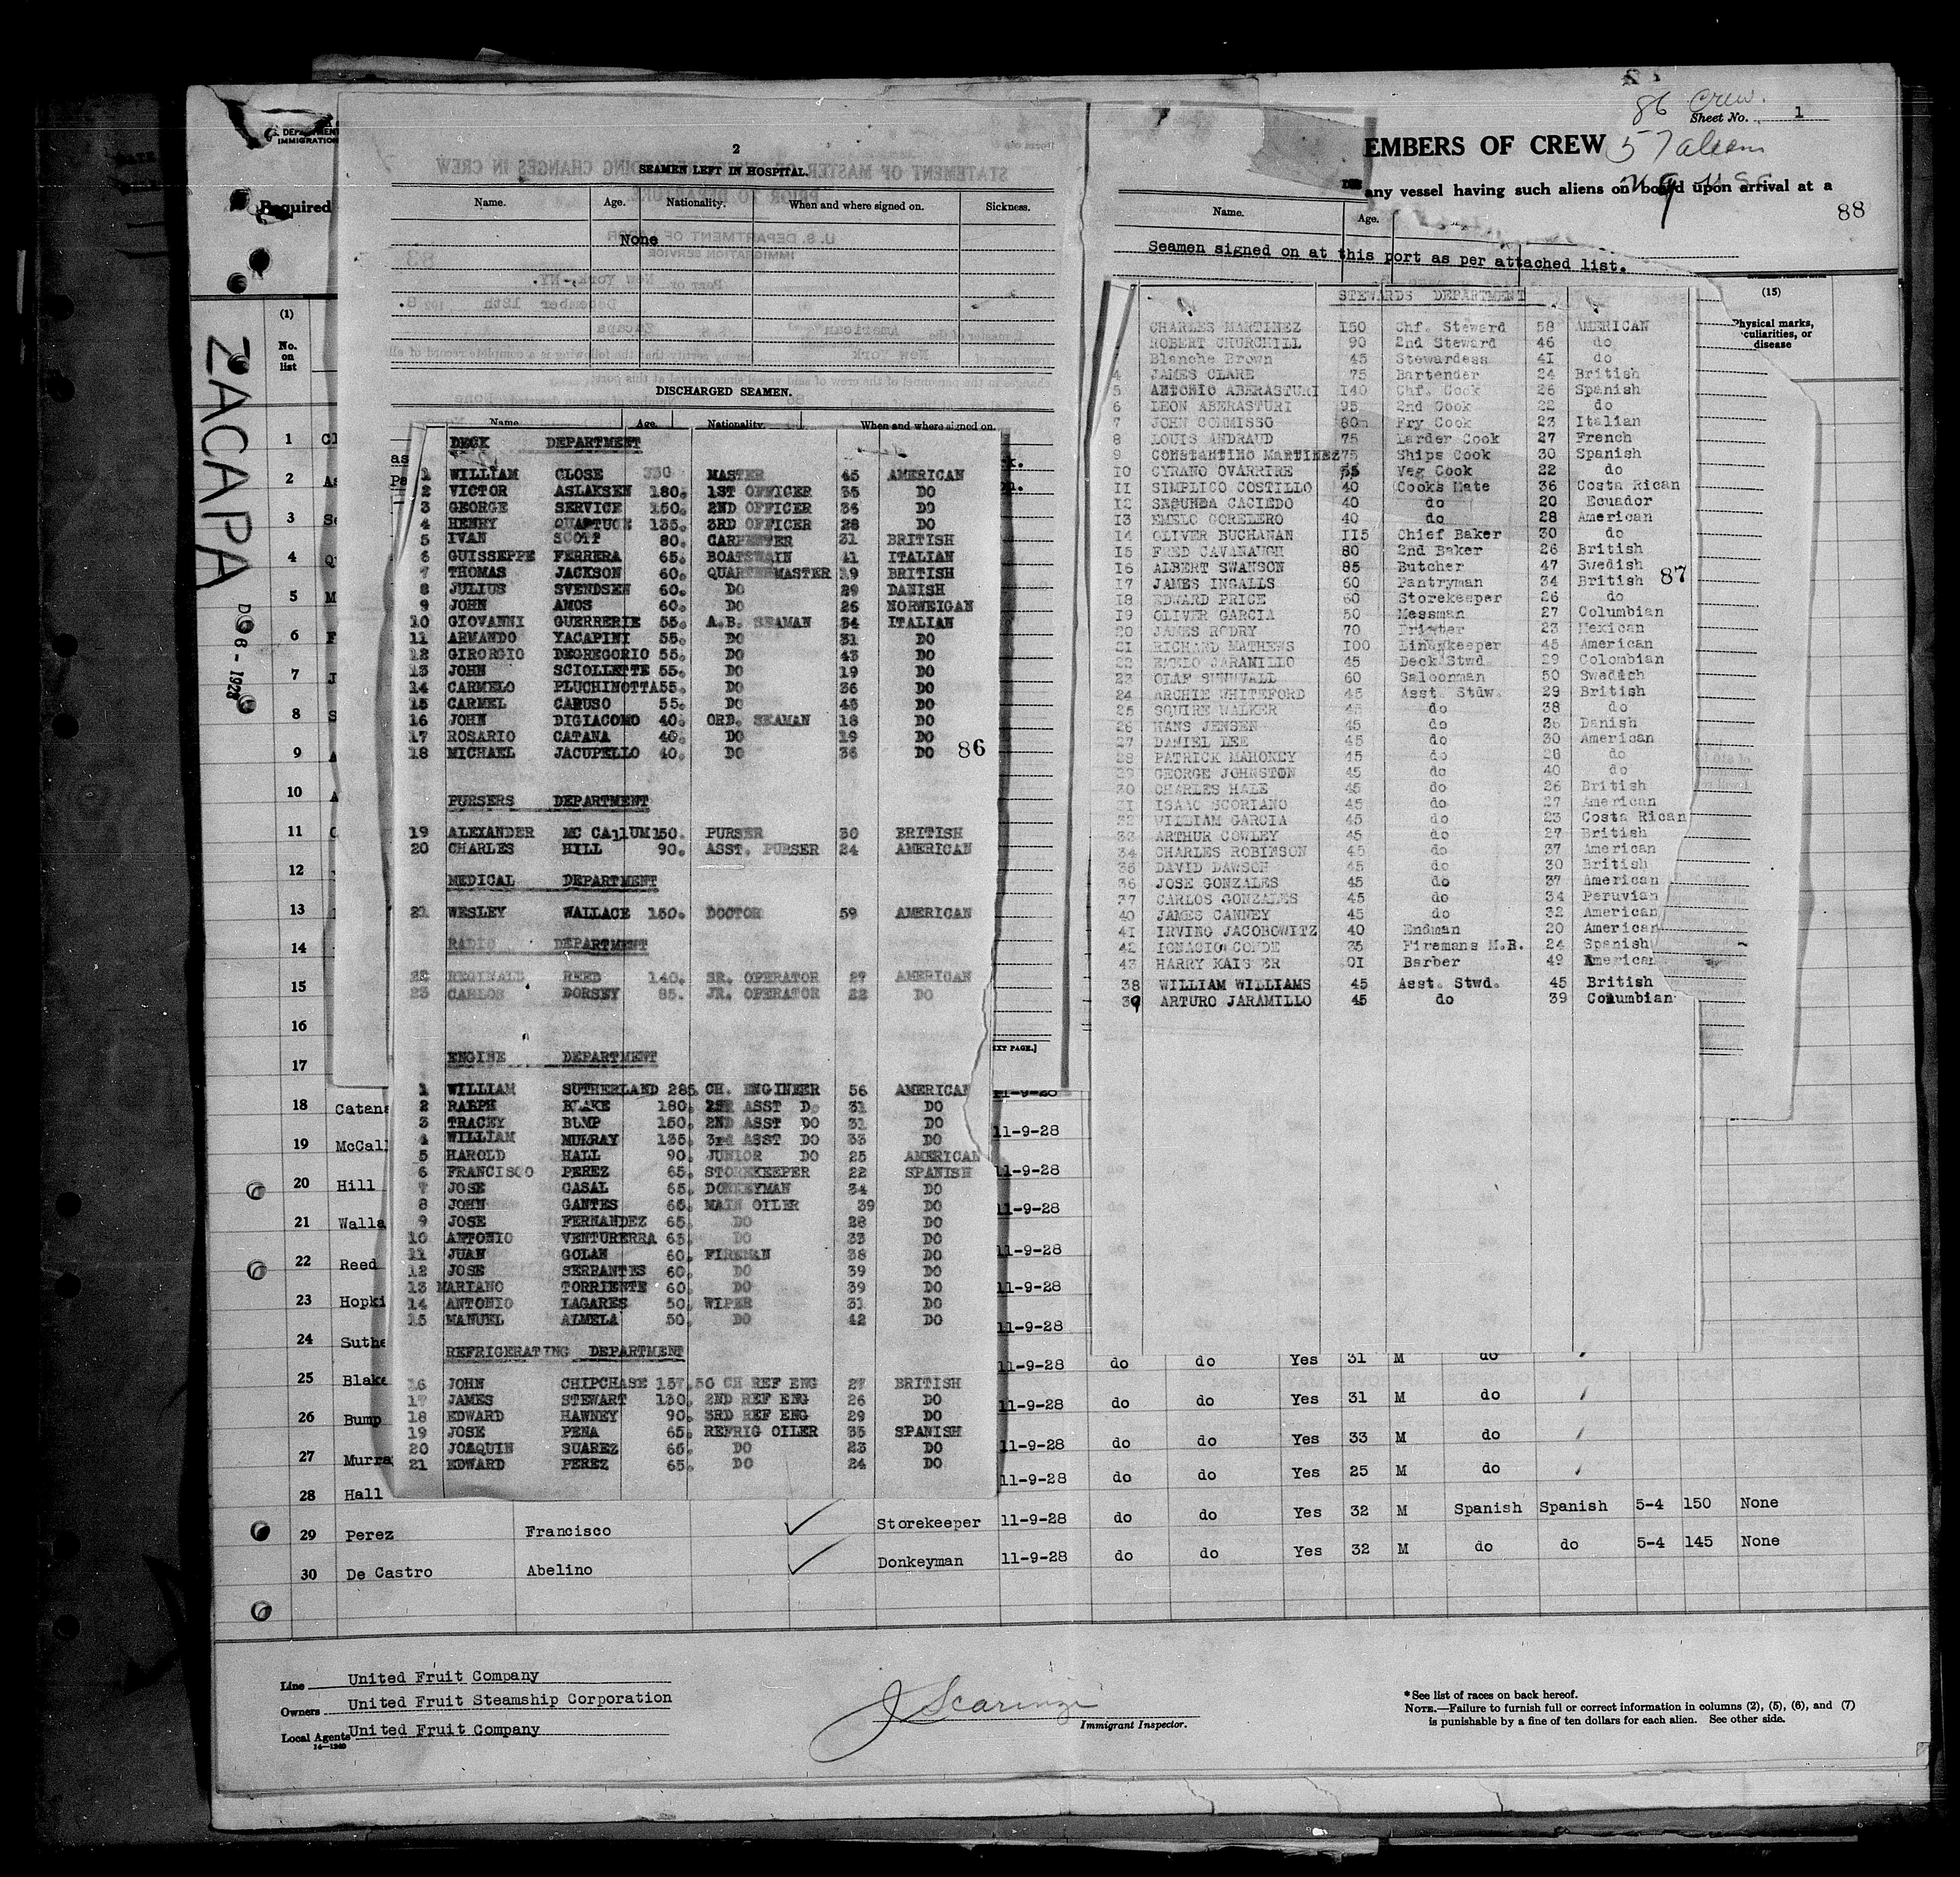 86 Crew.
Sheet No. 1
EMBERS OF CREW 57 aliens
any vessel having such aliens on board upon arrival at a
88
DEPARTMENT
IMMIGRATION
Required
ZACAPA
D 6-1928
(1)
No. on list
(15)
Physical marks, peculiarities, or disease
2
SEAMEN LEFT IN HOSPITAL.
Name. Age. Nationality. When and where signed on. Sickness.
None
DISCHARGED SEAMEN.
Name Age. Nationality. When and where signed on.
DECK DEPARTMENT
1 WILLIAM CLOSE MASTER 45 AMERICAN
2 VICTOR ASLAKSEN 180. 1ST OFFICER 35 DO
3 GEORGE SERVICE 150. 2ND OFFICER 36 DO
4 HENRY QUARTUCH 135. 3RD OFFICER 28 DO
5 IVAN SCOTT 80. CARPENTER 31 BRITISH
6 GUISSEPPE FERRERA 65. BOATSWAIN 41 ITALIAN
7 THOMAS JACKSON 60. QUARTERMASTER 19 BRITISH
8 JULIUS SVENDSEN 60. DO 29 DANISH
9 JOHN AMOS 60. DO 26 NORWEIGAN
10 GIOVANNI GUERRERIE 55. A.B. SEAMAN 34 ITALIAN
11 ARMANDO YACAPINI 55. DO 31 DO
12 GIRORGIO DEGREGORIO 55. DO 43 DO
13 JOHN SCIOLLETTE 55. DO 19 DO
14 CARMELO PLUCHINOTTA 55. DO 36 DO
15 CARMEL CARUSO 55. DO 43 DO
16 JOHN DIGIACOMO 40. ORD. SEAMAN 18 DO
17 ROSARIO CATANA 40. DO 19 DO
18 MICHAEL JACUPELLO 40. DO 36 DO
86
PURSERS DEPARTMENT
19 ALEXANDER MC CALLUM 150. PURSER 30 BRITISH
20 CHARLES HILL 90. ASST. PURSER 24 AMERICAN
MEDICAL DEPARTMENT
21 WESLEY WALLACE 150. DOCTOR 59 AMERICAN
RADIO DEPARTMENT
22 REGINALD REED 140. SR. OPERATOR 27 AMERICAN
23 CARLOS DORSEY 85. JR. OPERATOR 22 DO
ENGINE DEPARTMENT
1 WILLIAM SUTHERLAND 285. CH. ENGINEER 56 AMERICAN
2 RALPH BLAKE 180. ASST DO 31 DO
3 TRACEY BUMP 150. 2ND ASST DO 31 DO
4 WILLIAM MURRAY 135. 3rd ASST DO 33 DO
5 HAROLD HALL 90. JUNIOR DO 25 AMERICAN
6 FRANCISCO PEREZ 65. STOREKEEPER 22 SPANISH
7 JOSE CASAL 65. DONKEYMAN 34 DO
8 JOHN GANTES 65. MAIN OILER 39 DO
9 JOSE FERNANDEZ 65. DO 28 DO
10 ANTONIO VENTURERRA 65. DO 33 DO
11 JUAN GOLAN 60. FIREMAN 38 DO
12 JOSE SERRANTES 60. DO 39 DO
13 MARIANO TORRIENTE 60. DO 39 DO
14 ANTONIO LAGARES 50. WIPER 31 DO
15 MANUEL ALMELA 50. DO 42 DO
REFRIGERATING DEPARTMENT
16 JOHN CHIPCHASE 157.50 CH REF ENG 27 BRITISH
17 JAMES STEWART 130. 2ND REF ENG 26 DO
18 EDWARD HAWNEY 90. 3RD REF ENG 29 DO
19 JOSE PENA 65. REFRIG OILER 35 SPANISH
20 JOAQUIN SUAREZ 65. DO 23 DO
21 EDWARD PEREZ 65. DO 24 DO
Name. Age.
Seamen signed on at this port as per attached list.
STEWARDS DEPARTMENT
CHARLES MARTINEZ 150 Chf. Steward 58 AMERICAN
ROBERT CHURCHILL 90 2nd Steward 46 do
Blanche Brown 45 Stewardess 41 do
4 JAMES CLARE 75 Bartender 24 British
5 ANTONIO ABERASTURI 140 Chf. Cook 26 Spanish
6 LEON ABERASTURI 95 2nd Cook 22 do
7 JOHN COMMISSO 80 Fry Cook 23 Italian
8 LOUIS ANDRAUD 75 Larder Cook 27 French
9 CONSTANTINO MARTINEZ 75 Ships Cook 30 Spanish
10 CYRANO OVARRIRE 55 Veg Cook 22 do
11 SIMPLICO COSTILLO 40 Cooks Mate 36 Costa Rican
12 SEGUNDA CACIEDO 40 do 20 Ecuador
13 EMELO CORELERO 40 do 28 American
14 OLIVER BUCHANAN 115 Chief Baker 30 do
15 FRED CAVANAUGH 80 2nd Baker 26 British
16 ALBERT SWANSON 85 Butcher 47 Swedish
17 JAMES INGALLS 60 Pantryman 34 British
87
18 EDWARD PRICE 60 Storekeeper 26 do
19 OLIVER GARCIA 50 Messman 27 Columbian
20 JAMES RODRY 70 Printer 23 Mexican
21 RICHARD MATHEWS 100 Linenkeeper 45 American
22 EMELO JARAMILLO 45 Deck Stwd. 29 Colombian
23 OLAF SUNDVALL 60 Saloonman 50 Swedich
24 ARCHIE WHITEFORD 45 Asst. Stdw. 29 British
25 SQUIRE WALKER 45 do 38 do
26 HANS JENSEN 45 do 26 Danish
27 DANIEL LEE 45 do 30 American
28 PATRICK MAHONEY 45 do 28 do
29 GEORGE JOHNSTON 45 do 40 do
30 CHARLES HALE 45 do 26 British
31 ISAAC SCORIANO 45 do 27 American
32 WILLIAM GARCIA 45 do 23 Costa Rican
33 ARTHUR COWLEY 45 do 27 British
34 CHARLES ROBINSON 45 do 37 American
35 DAVID DAWSON 45 do 30 British
36 JOSE GONZALES 45 do 37 American
37 CARLOS GONZALES 45 do 34 Peruvian
40 JAMES CANNEY 45 do 32 American
41 IRVING JACOBOWITZ 40 Endman 20 American
42 IGNACIO CONDE 35 Firemans M.R. 24 Spanish
43 HARRY KAISER 01 Barber 49 American
38 WILLIAM WILLIAMS 45 Asst. Stwd. 45 British
39 ARTURO JARAMILLO 45 do 39 Columbian
1 Cl
2 As
3 Se
4 Qu
5 M
6 F
7 J
8 S
9 A
10 A
11 G
12
13
14
15
16
17
18 Catana
19 McCall 11-9-28
20 Hill 11-9-28
21 Walla 11-9-28
22 Reed 11-9-28
23 Hopki 11-9-28
24 Suthe 11-9-28
25 Blake 11-9-28 do do Yes 31 M do
26 Bump 11-9-28 do do Yes 31 M do
27 Murra 11-9-28 do do Yes 33 M do
28 Hall 11-9-28 do do Yes 25 M do
29 Perez Francisco Storekeeper 11-9-28 do do Yes 32 M Spanish Spanish 5-4 150 None
30 De Castro Abelino Donkeyman 11-9-28 do do Yes 32 M do do 5-4 145 None
Line United Fruit Company
Owners United Fruit Steamship Corporation
Local Agents United Fruit Company
14-1240
J Scarinzi
Immigrant Inspector.
*See list of races on back hereof.
NOTE.—Failure to furnish full or correct information in columns (2), (5), (6), and (7)
is punishable by a fine of ten dollars for each alien. See other side.